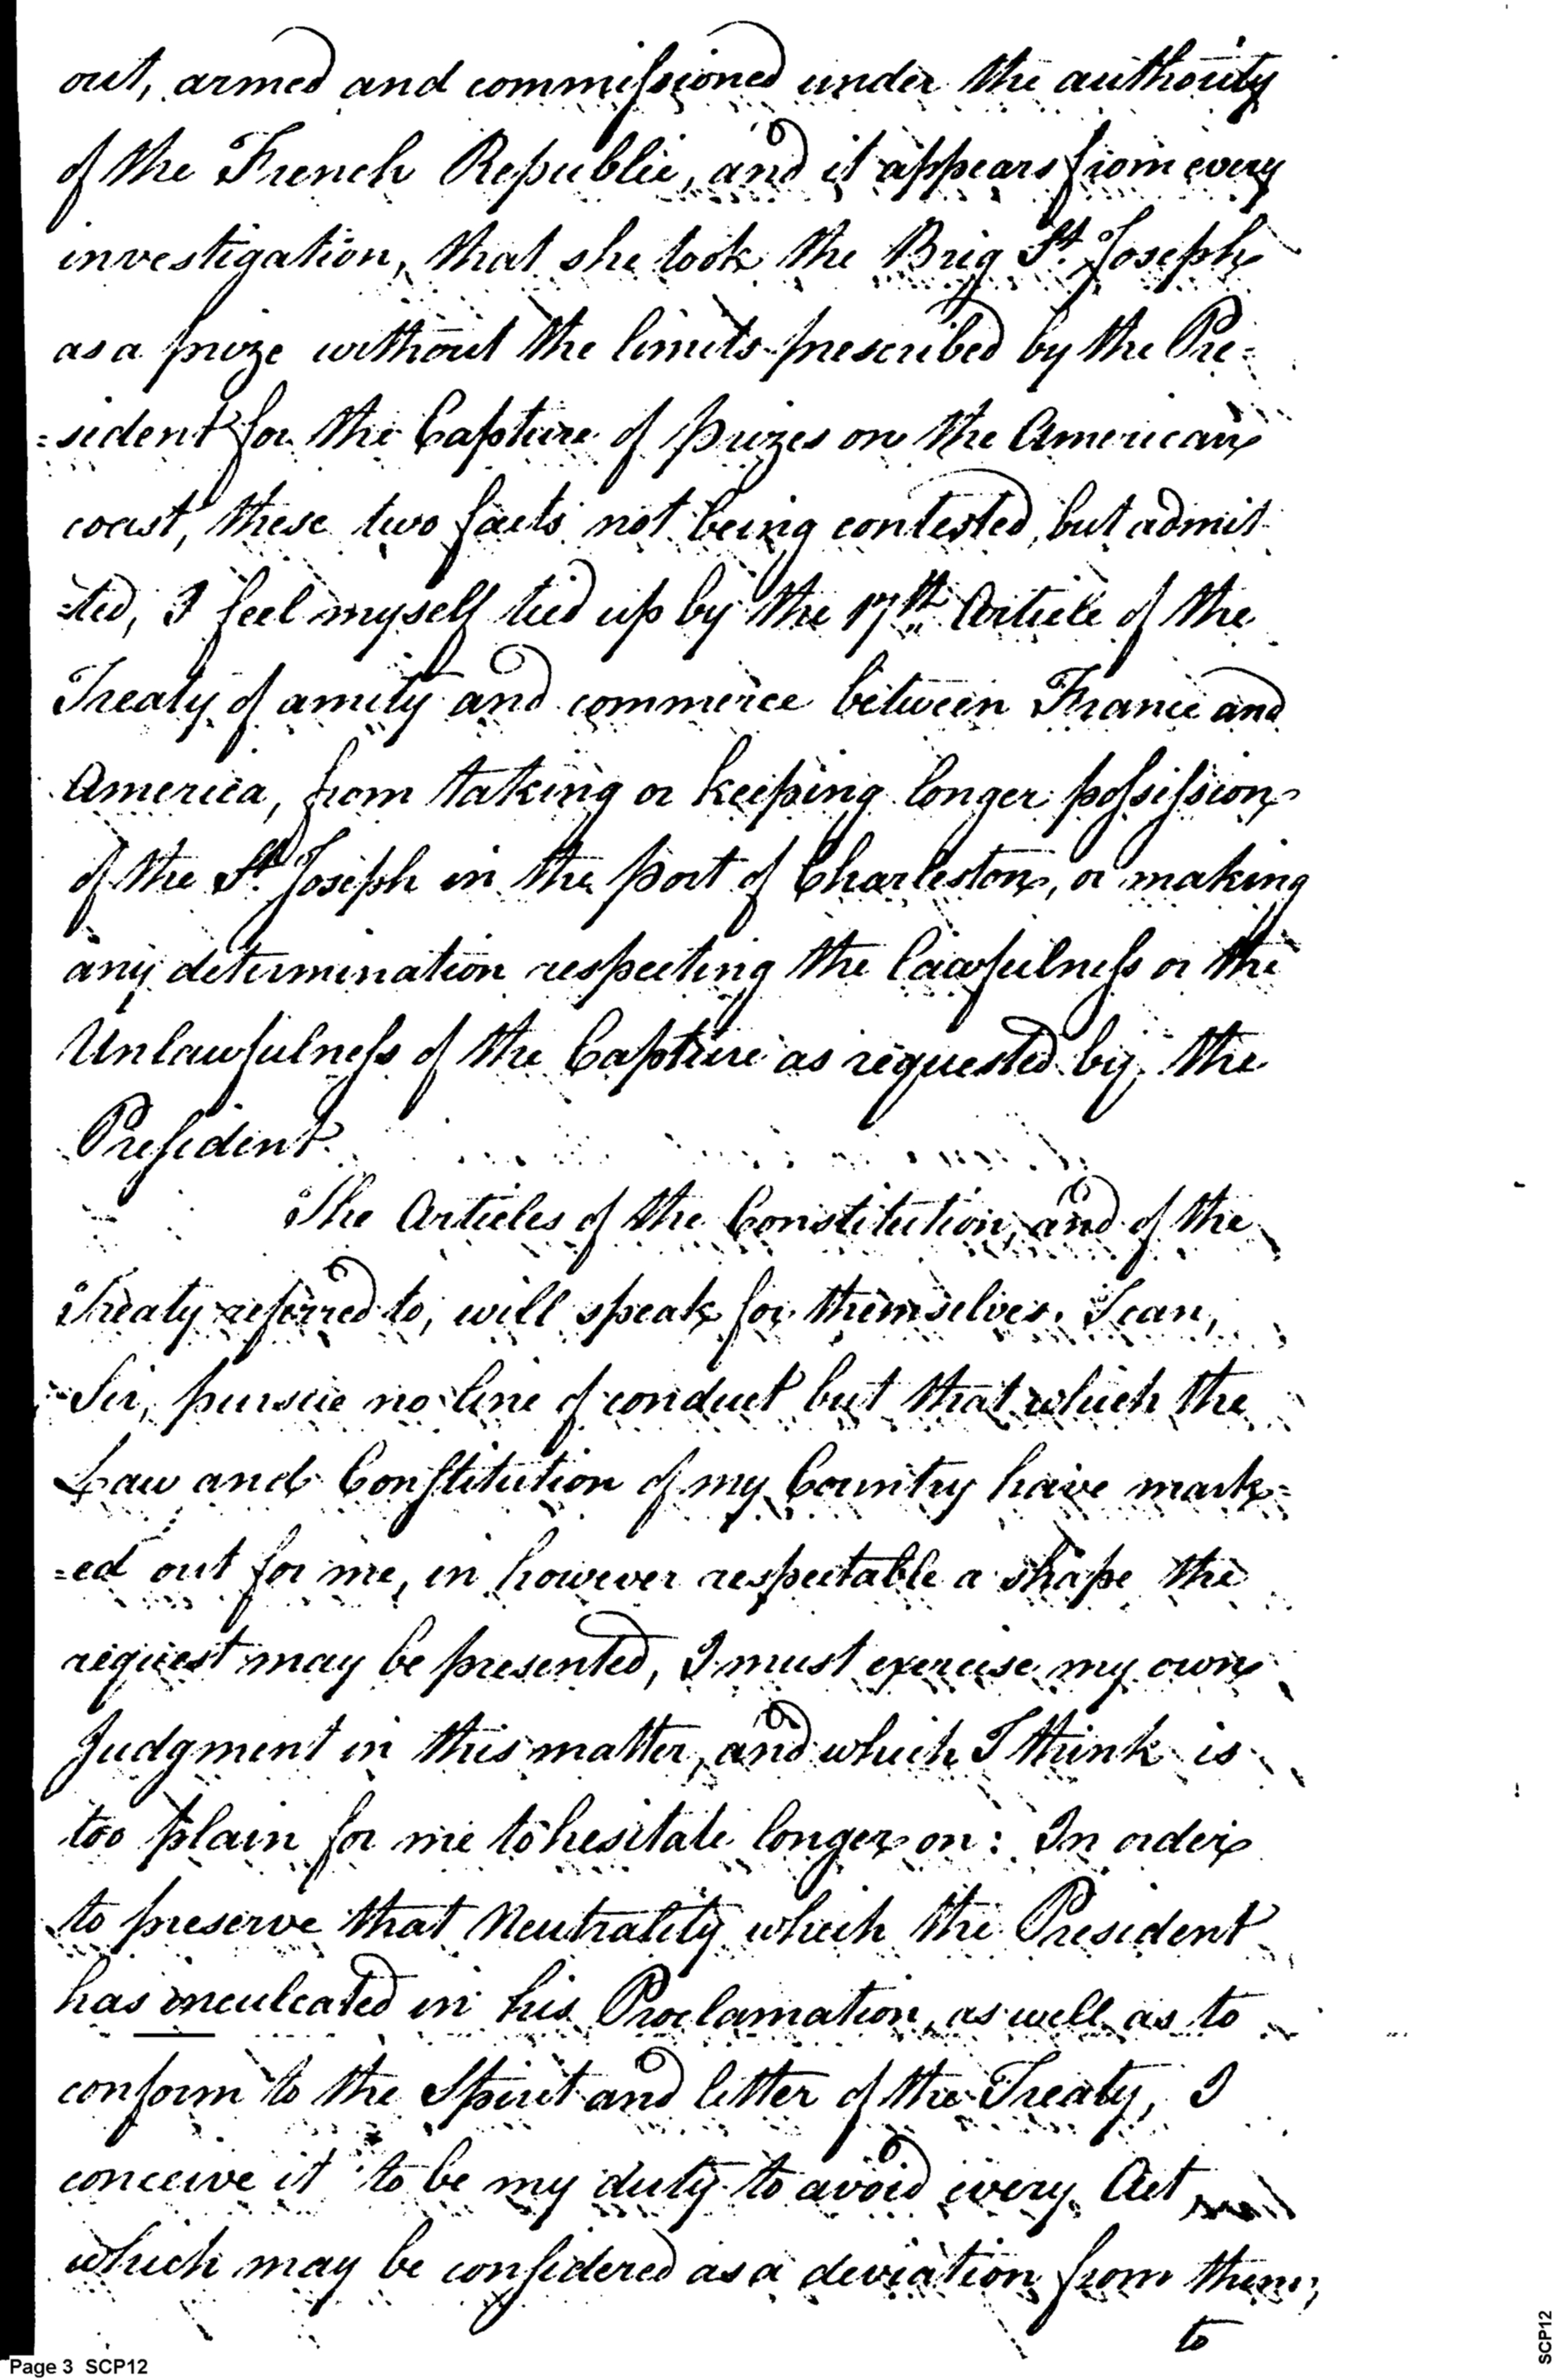 out, armed and commissioned under the authority
of the French Republic, and it appears from every
investigation, that she took the Brig St. Joseph
as a prize without the limits prescribed by the Pre=
=sident for the Capture of prizes on the American
coast, these two facts not being contested, but admit
=ted, I feel myself tied up by the 17th Article of the
Treaty of amity and commerce between France and
America, from taking or keeping longer possession
of the St. Joseph in the port of Charleston, or making
any determination respecting the lawfulness or the
Unlawfulness of the Capture as requested by the
President.
The Articles of the Constitution, and of the
Treaty referred to, will speak for themselves. I can,
Sir, pursue no line of conduct but that which the
Law and Constitution of my Country have mark=
=ed out for me, in however respectable a shape the
request may be presented, I must exercise my own
Judgment in this matter, and which I think is
too plain for me to hesitate longer on: In order
to preserve that Neutrality which the President
has inculcated in his Proclamation, as well as to
conform to the Spirit and letter of the Treaty, I
conceive it to be my duty to avoid every Act
which may be considered as a deviation from them,
to
Page 3 SCP12
SCP12